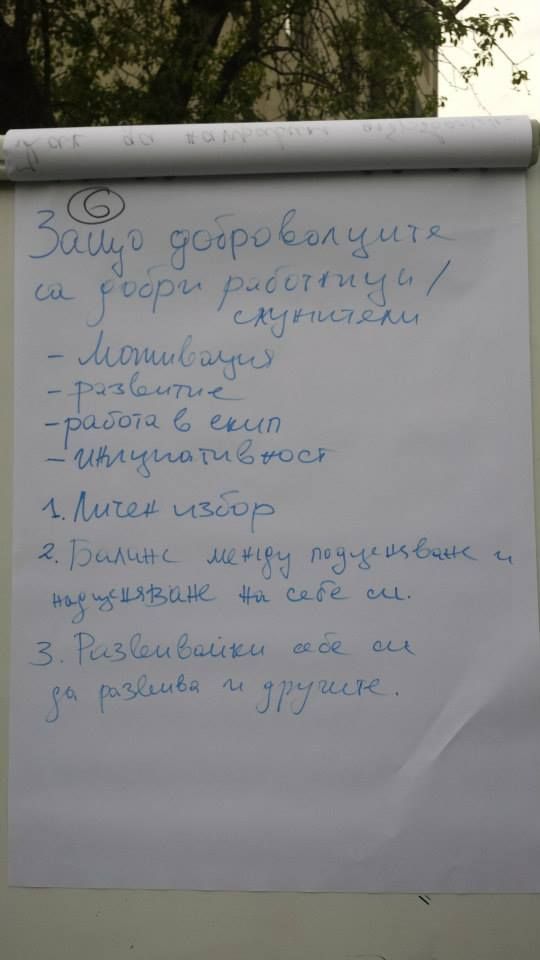 как да направим
6
Защо доброволците
са добри работници/
служители
- Мотивация
- развитие
- работа в екип
- инициативност
1. Личен избор
2. Баланс между подценяване и
надценяване на себе си.
3. Развивайки себе си
да развива и другите.